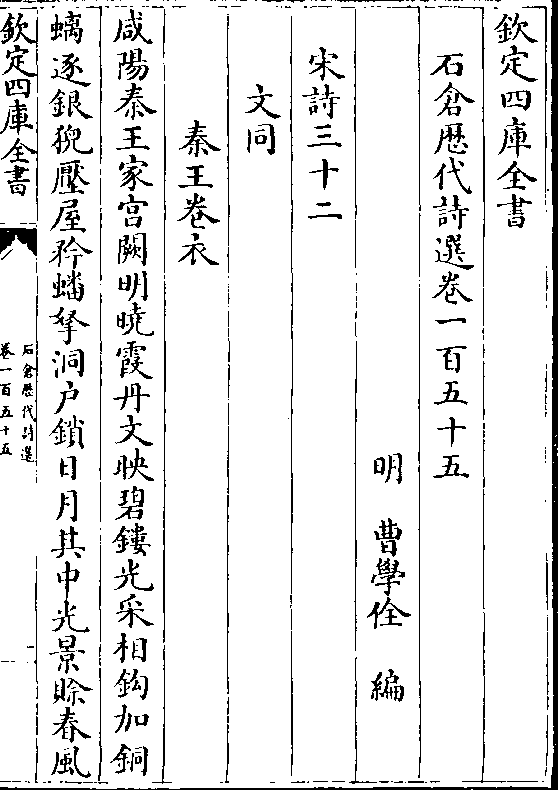 欽定四庫全書
石倉歷代詩選卷一百五十五
明 曹學佺 編
宋詩三十二
文同
秦王卷衣
咸陽秦王家宫闕明曉霞丹文映碧鏤光采相鈎加銅
螭逐銀猊壓屋矜蟠拏洞户鎖日月其中光景賒春風
欽定四庫全書
石倉歷代詩選
卷一百五十五
一